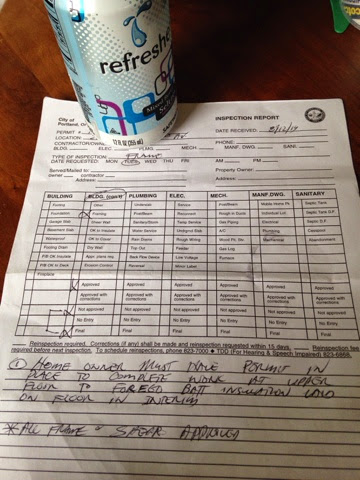 refreshe
12 FL OZ (355 mL)
City of
Portland,
INSPECTION REPORT
PERMIT #
DATE RECEIVED:
LOCATION:
PHONE:
CONTRACTOR/OWNER
BLDG. ELEC. PLMG. MECH. MANF. DWG. SANI.
TYPE OF INSPECTION: FRAME
DATE REQUESTED: MON TUES WED THU FRI AM PM
Served/Mailed to: Property Owner:
owner contractor Address:
Address:
BUILDING BLDG. (con't) PLUMBING ELEC. MECH. MANF. DWG. SANITARY
Footing Other Underslab Service Post/Beam Mobile Home Pk Septic Tank
Foundation Framing Post/Beam Reconnect Rough In Ducts Individual Lot Septic Tank D.F.
Garage Slab Shear Wall Sanitary/Storm Temp Service Gas Piping Electrical Septic D.F.
Basement Slab OK to Insulate Water Service A/C Plumbing Cesspool
Waterproof OK to Cover Rain Drains Rough Wiring Wood Plt. Stv. Mechanical Abandonment
Footing Drain Dry Wall Top Out Feeder Gas Log
P/B OK Insulate Appr. plans req. Back Flow Device Low Voltage Furnace
P/B OK to Deck Erosion Control Reversal Minor Label
Fireplace
Approved Approved Approved Approved Approved Approved
Approved with corrections Approved with corrections Approved with corrections Approved with corrections Approved with corrections Approved with corrections
Not approved Not approved Not approved Not approved Not approved Not approved
No Entry No Entry No Entry No Entry No Entry No Entry
Final Final Final Final Final Final
Reinspection required. Corrections (if any) shall be made and reinspection requested within 15 days. Reinspection fee
required before next inspection. To schedule reinspections, phone 823-7000 • TDD (For Hearing & Speech Impaired) 823-6868.
① HOME OWNER MUST HAVE PERMIT IN
PLACE TO COMPLETE WORK AT UPPER
FLOOR TO BATT INSULATION
ON FLOOR IN INTERIM
* ALL FRAME & SHEAR APPROVED